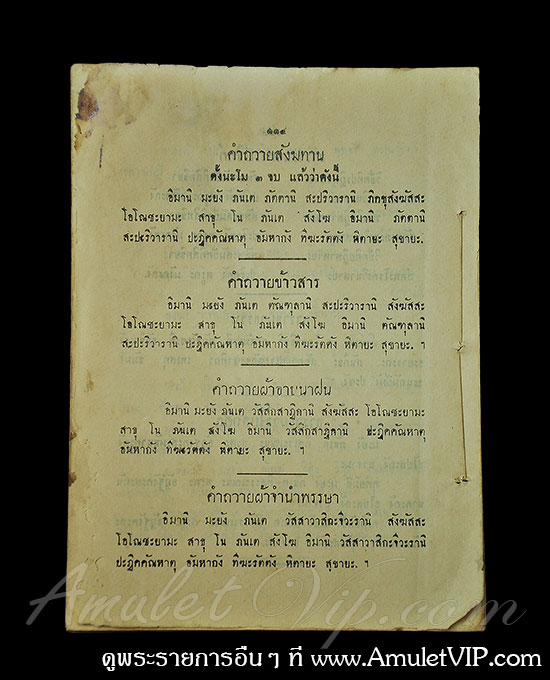 ๑๑๔
คำถวายสังฆทาน
ตั้งนะโม ๓ จบ แล้วว่าดังนี้
อิมานิ มะยัง ภันเต ภัตตานิ สะปริวารานิ ภิกขุสังฆัสสะ
โอโณชะยามะ สาธุ โน ภันเต สังโฆ อิมานิ ภัตตานิ
สะปริวารานิ ปะฏิคคัณหาตุ อัมหากัง ทีฆะรัตตัง หิตายะ สุขายะ.
คำถวายข้าวสาร
อิมานิ มะยัง ภันเต ตัณฑุลานิ สะปริวารานิ สังฆัสสะ
โอโณชะยามะ สาธุ โน ภันเต สังโฆ อิมานิ ตัณฑุลานิ
สะปริวารานิ ปะฏิคคัณหาตุ อัมหากัง ทีฆะรัตตัง หิตายะ สุขายะ. ฯ
คำถวายผ้าอาบน้ำฝน
อิมานิ มะยัง ภันเต วัสสิกสาฎิกานิ สังฆัสสะ โอโณชะยามะ
สาธุ โน ภันเต สังโฆ อิมานิ วัสสิกสาฎิกานิ ปะฏิคคัณหาตุ
อัมหากัง ทีฆะรัตตัง หิตายะ สุขายะ. ฯ
คำถวายผ้าจำนำพรรษา
อิมานิ มะยัง ภันเต วัสสาวาสิกะจีวะรานิ สังฆัสสะ
โอโณชะยามะ สาธุ โน ภันเต สังโฆ อิมานิ วัสสาวาสิกะจีวะรานิ
ปะฏิคคัณหาตุ อัมหากัง ทีฆะรัตตัง หิตายะ สุขายะ. ฯ
Amulet Vip.com
ดูพระรายการอื่นๆ ที่ www.AmuletVIP.com